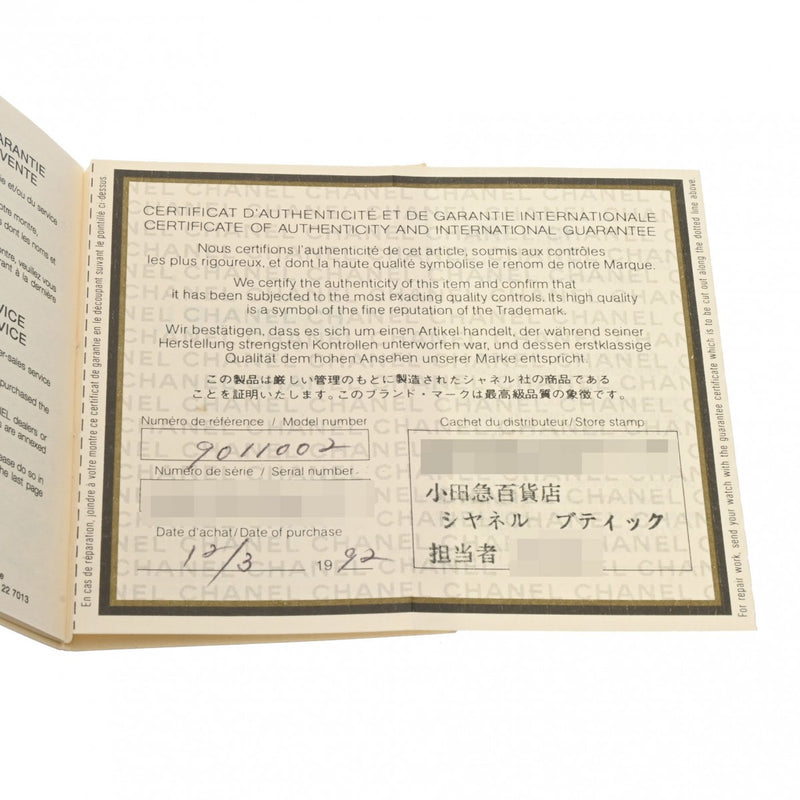 ARANTIE
VENTE
ie et/ou du service
otre montre,
s dont les noms et
ontre, veuillez vous
rant à la dernière
VICE
RVICE
er-sales service
purchased the
EL dealers or
s are annexed
ease do so in
he last page
22 7013
En cas de réparation, joindre à votre montre ce certificat de garantie en le découpant suivant le pointillé ci-dessus.
CERTIFICAT D'AUTHENTICITÉ ET DE GARANTIE INTERNATIONALE
CERTIFICATE OF AUTHENTICITY AND INTERNATIONAL GUARANTEE
Nous certifions l'authenticité de cet article, soumis aux contrôles
les plus rigoureux, et dont la haute qualité symbolise le renom de notre Marque.
We certify the authenticity of this item and confirm that
it has been subjected to the most exacting quality controls. Its high quality
is a symbol of the fine reputation of the Trademark.
Wir bestätigen, dass es sich um einen Artikel handelt, der während seiner
Herstellung strengsten Kontrollen unterworfen war, und dessen erstklassige
Qualität dem hohen Ansehen unserer Marke entspricht.
この製品は厳しい管理のもとに製造されたシャネル社の商品である
ことを証明いたします。このブランド・マークは最高級品質の象徴です。
Numéro de référence / Model number
9011002
Numéro de série / Serial number
Date d'achat/Date of purchase
12/3 1992
Cachet du distributeur/Store stamp
小田急百貨店
シヤネル ブティック
担当者
For repair work, send your watch with the guarantee certificate which is to be cut out along the dotted line above.